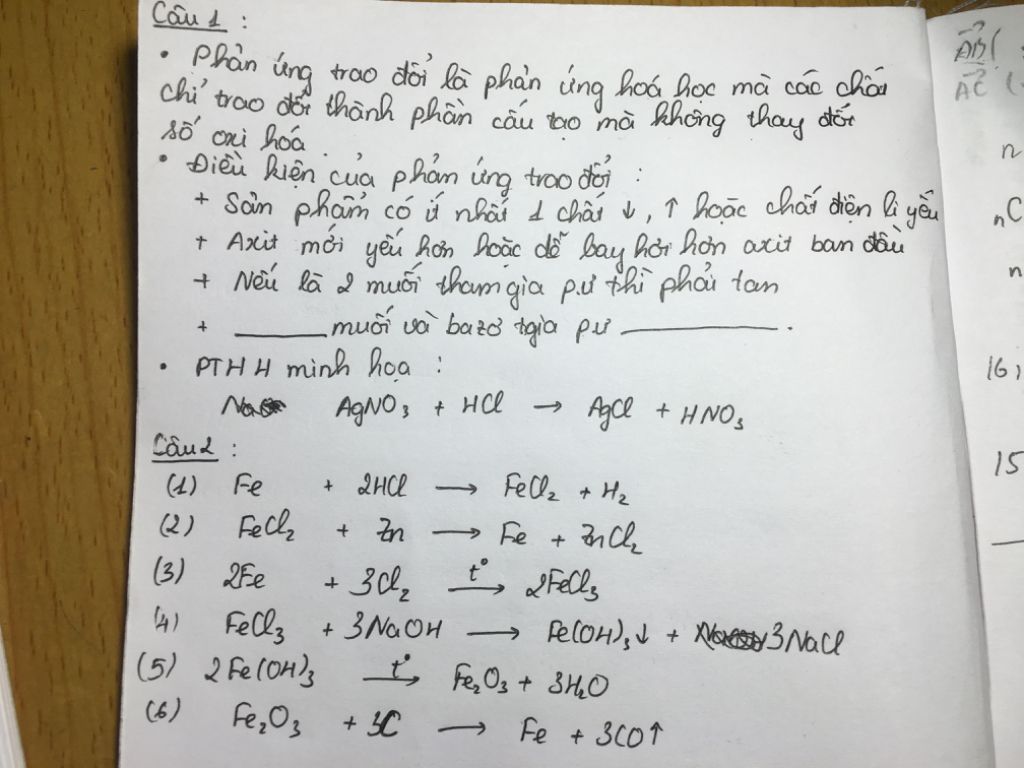 Câu 1 :
• Phản ứng trao đổi là phản ứng hoá học mà các chất
chỉ trao đổi thành phần cấu tạo mà không thay đổi
số oxi hóa.
• Điều kiện của phản ứng trao đổi :
+ Sản phẩm có ít nhất 1 chất ↓, ↑ hoặc chất điện li yếu
+ Axit mới yếu hơn hoặc dễ bay hơi hơn axit ban đầu
+ Nếu là 2 muối tham gia p.ư thì phải tan
+ ______ muối và bazơ tgia p.ư ______ .
• PTHH minh họa :
AgNO₃ + HCl → AgCl + HNO₃
Câu 2 :
(1) Fe + 2HCl → FeCl₂ + H₂
(2) FeCl₂ + Zn → Fe + ZnCl₂
(3) 2Fe + 3Cl₂ →t° 2FeCl₃
(4) FeCl₃ + 3NaOH → Fe(OH)₃↓ + 3NaCl
(5) 2Fe(OH)₃ →t° Fe₂O₃ + 3H₂O
(6) Fe₂O₃ + 3C → Fe + 3CO↑
AB (
AC (
n
nC
n
16,
15